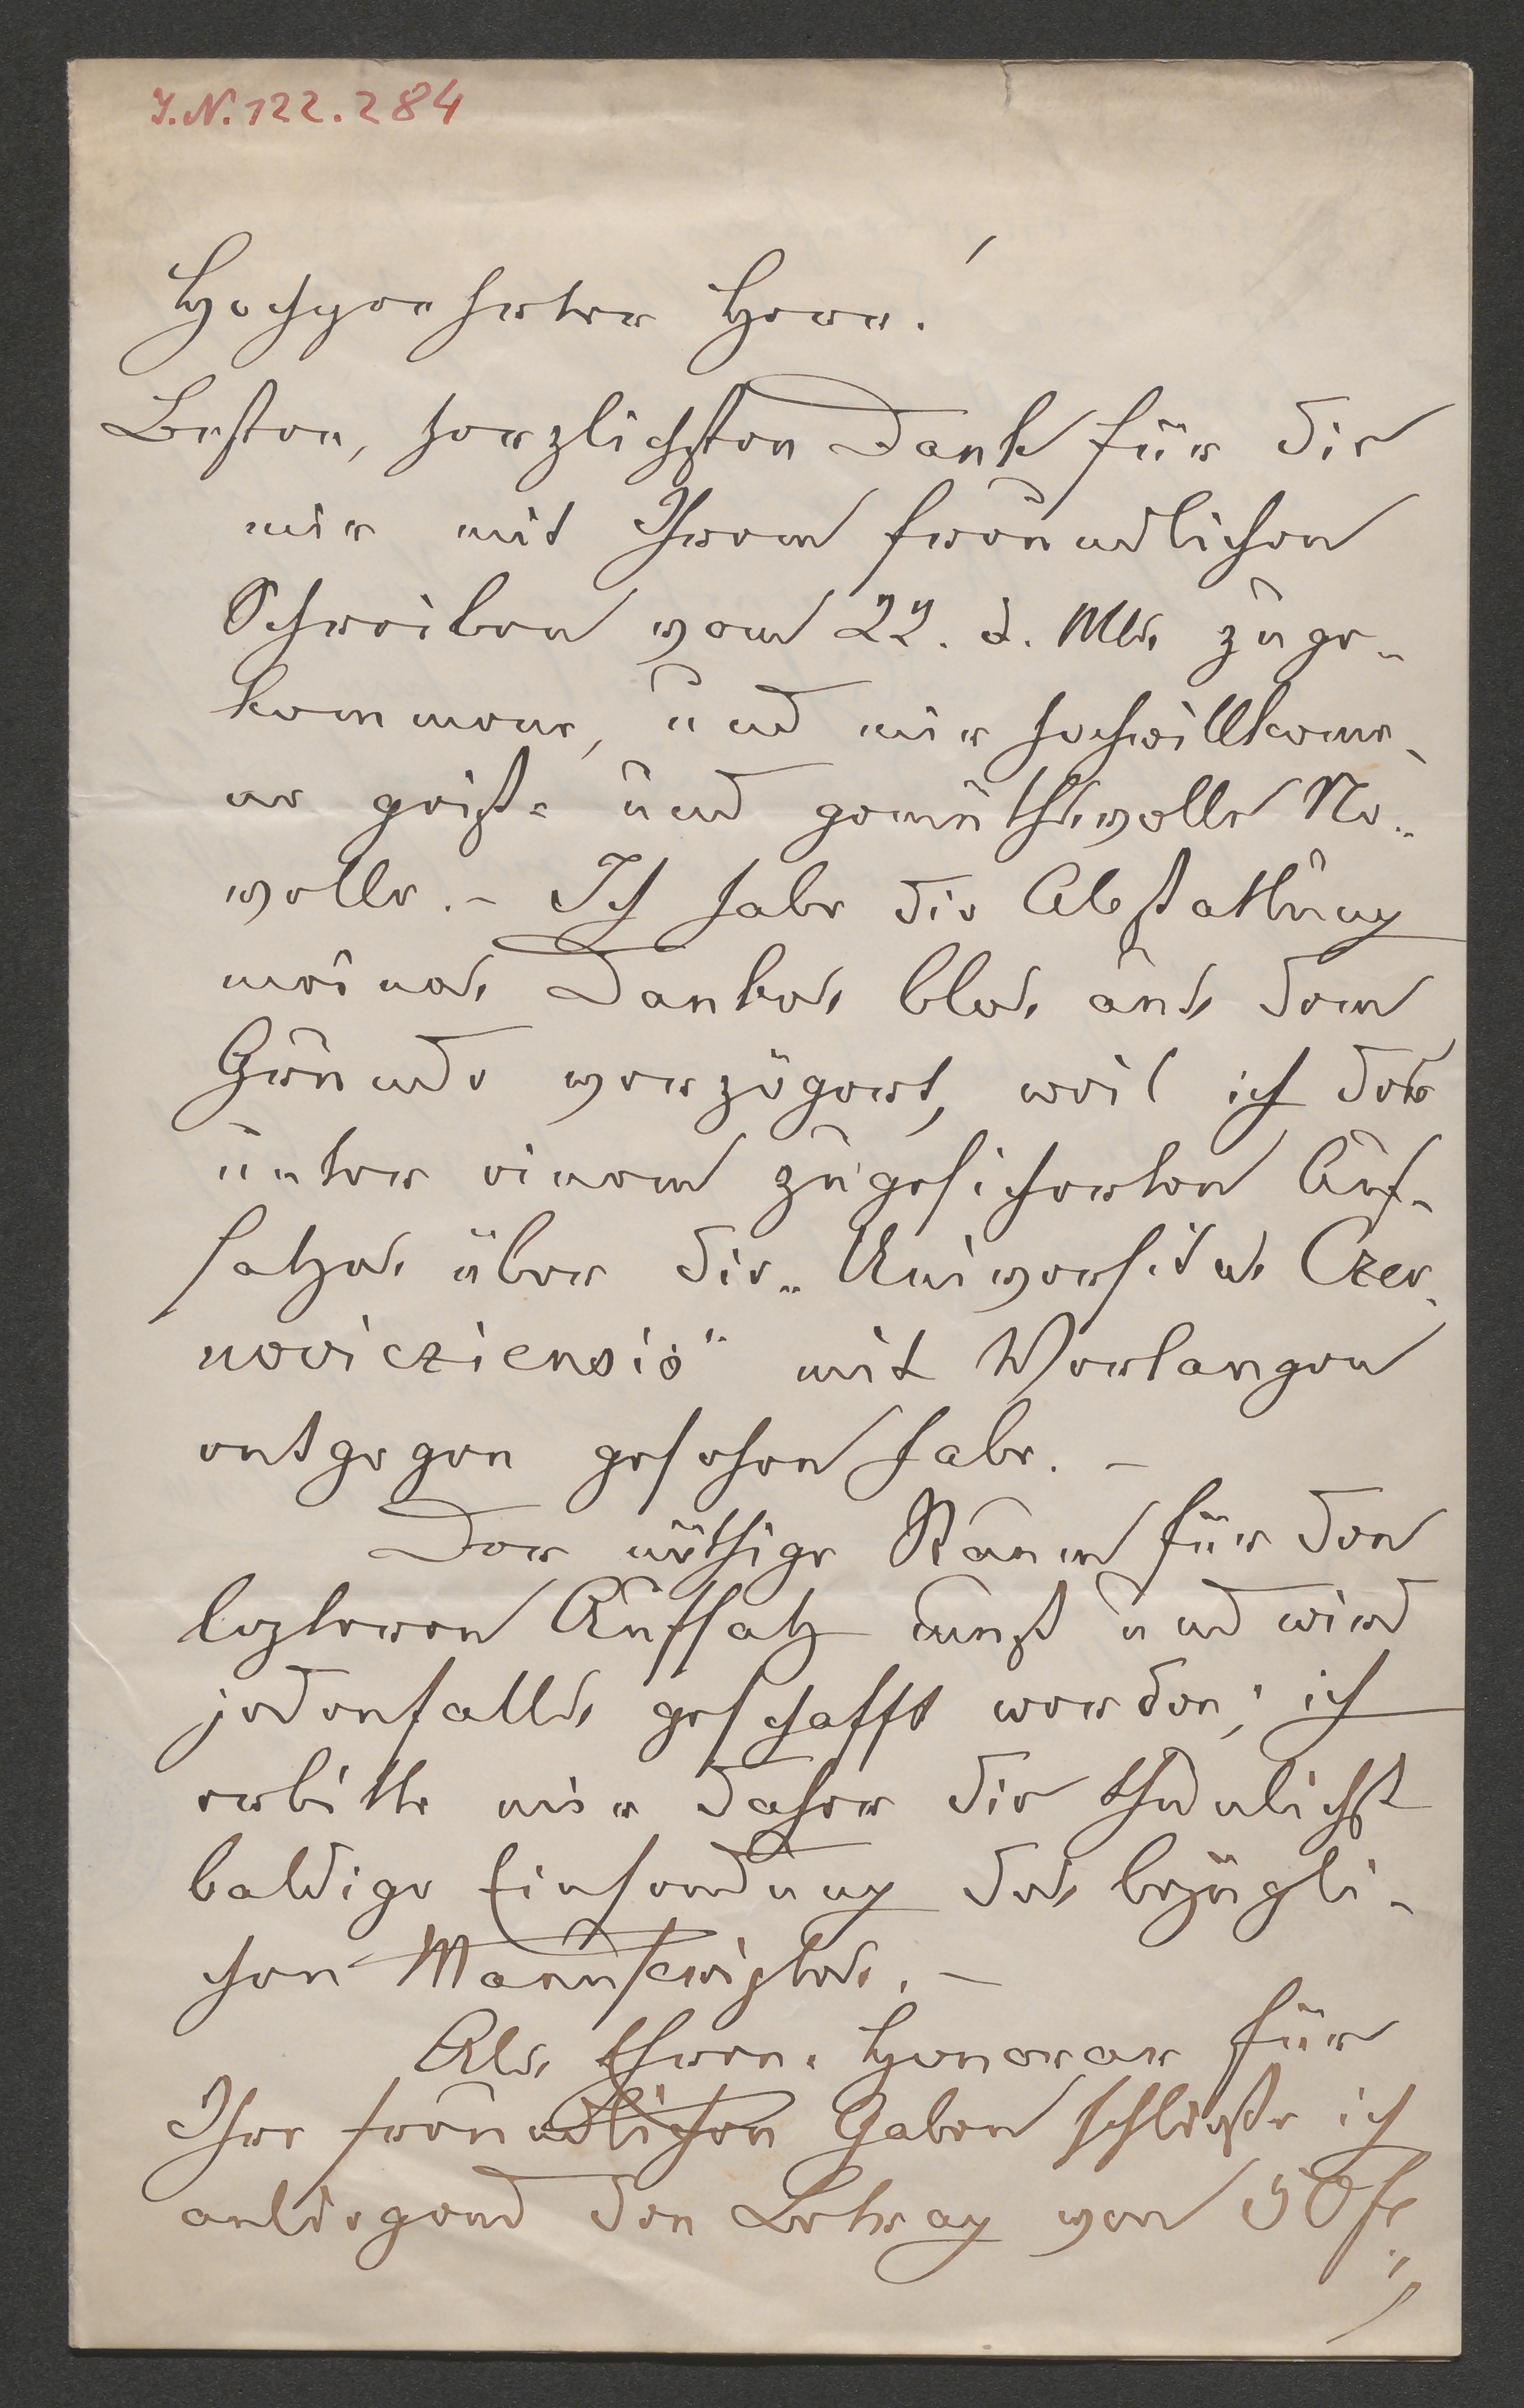 I.N. 122.284
Hochgeehrter Herr!
Besten, herzlichsten Dank für die
mir mit Ihrem freundlichen
Schreiben vom 22. d. Mts zuge-
kommene, und mir hochwillkomme-
ne geist- und gemüthsvolle No-
velle. – Ich habe die Abstattung
meines Dankes blos aus dem
Grunde verzögert, weil ich dem
unter einem zugesicherten Auf-
satzes über die „Universitas Czer-
novicziensis" mit Verlangen
entgegen gesehen habe. –
Der nöthige Raum für den
lezteren Aufsatz muß und wird
jedenfalls geschafft werden; ich
erbitte mir daher die thunlichst
baldige Einsendung des bezügli-
chen Manuscriptes. –
Als Ehren-Honorar für
Ihre freundlichen Gaben schließe ich
anliegend den Betrag von 50 f.,